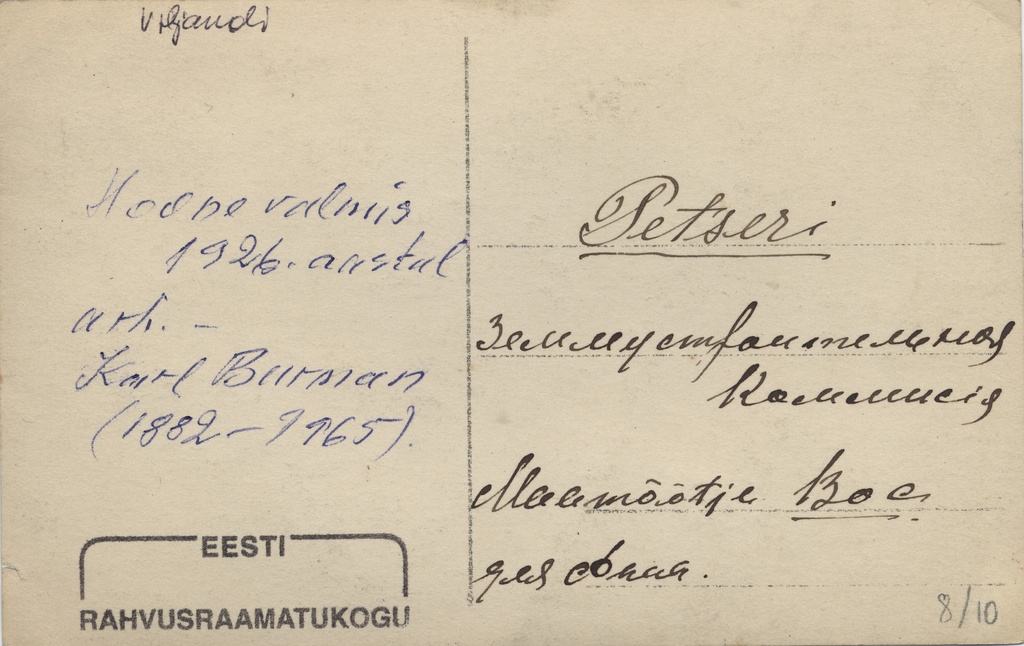 Viljandi
Hoone valmis
1926. aastal
arh. –
Karl Burman
(1882–1965).
EESTI
RAHVUSRAAMATUKOGU
Petseri
Землеустроительная
Коммисія
Maamõõtja
для
8/10